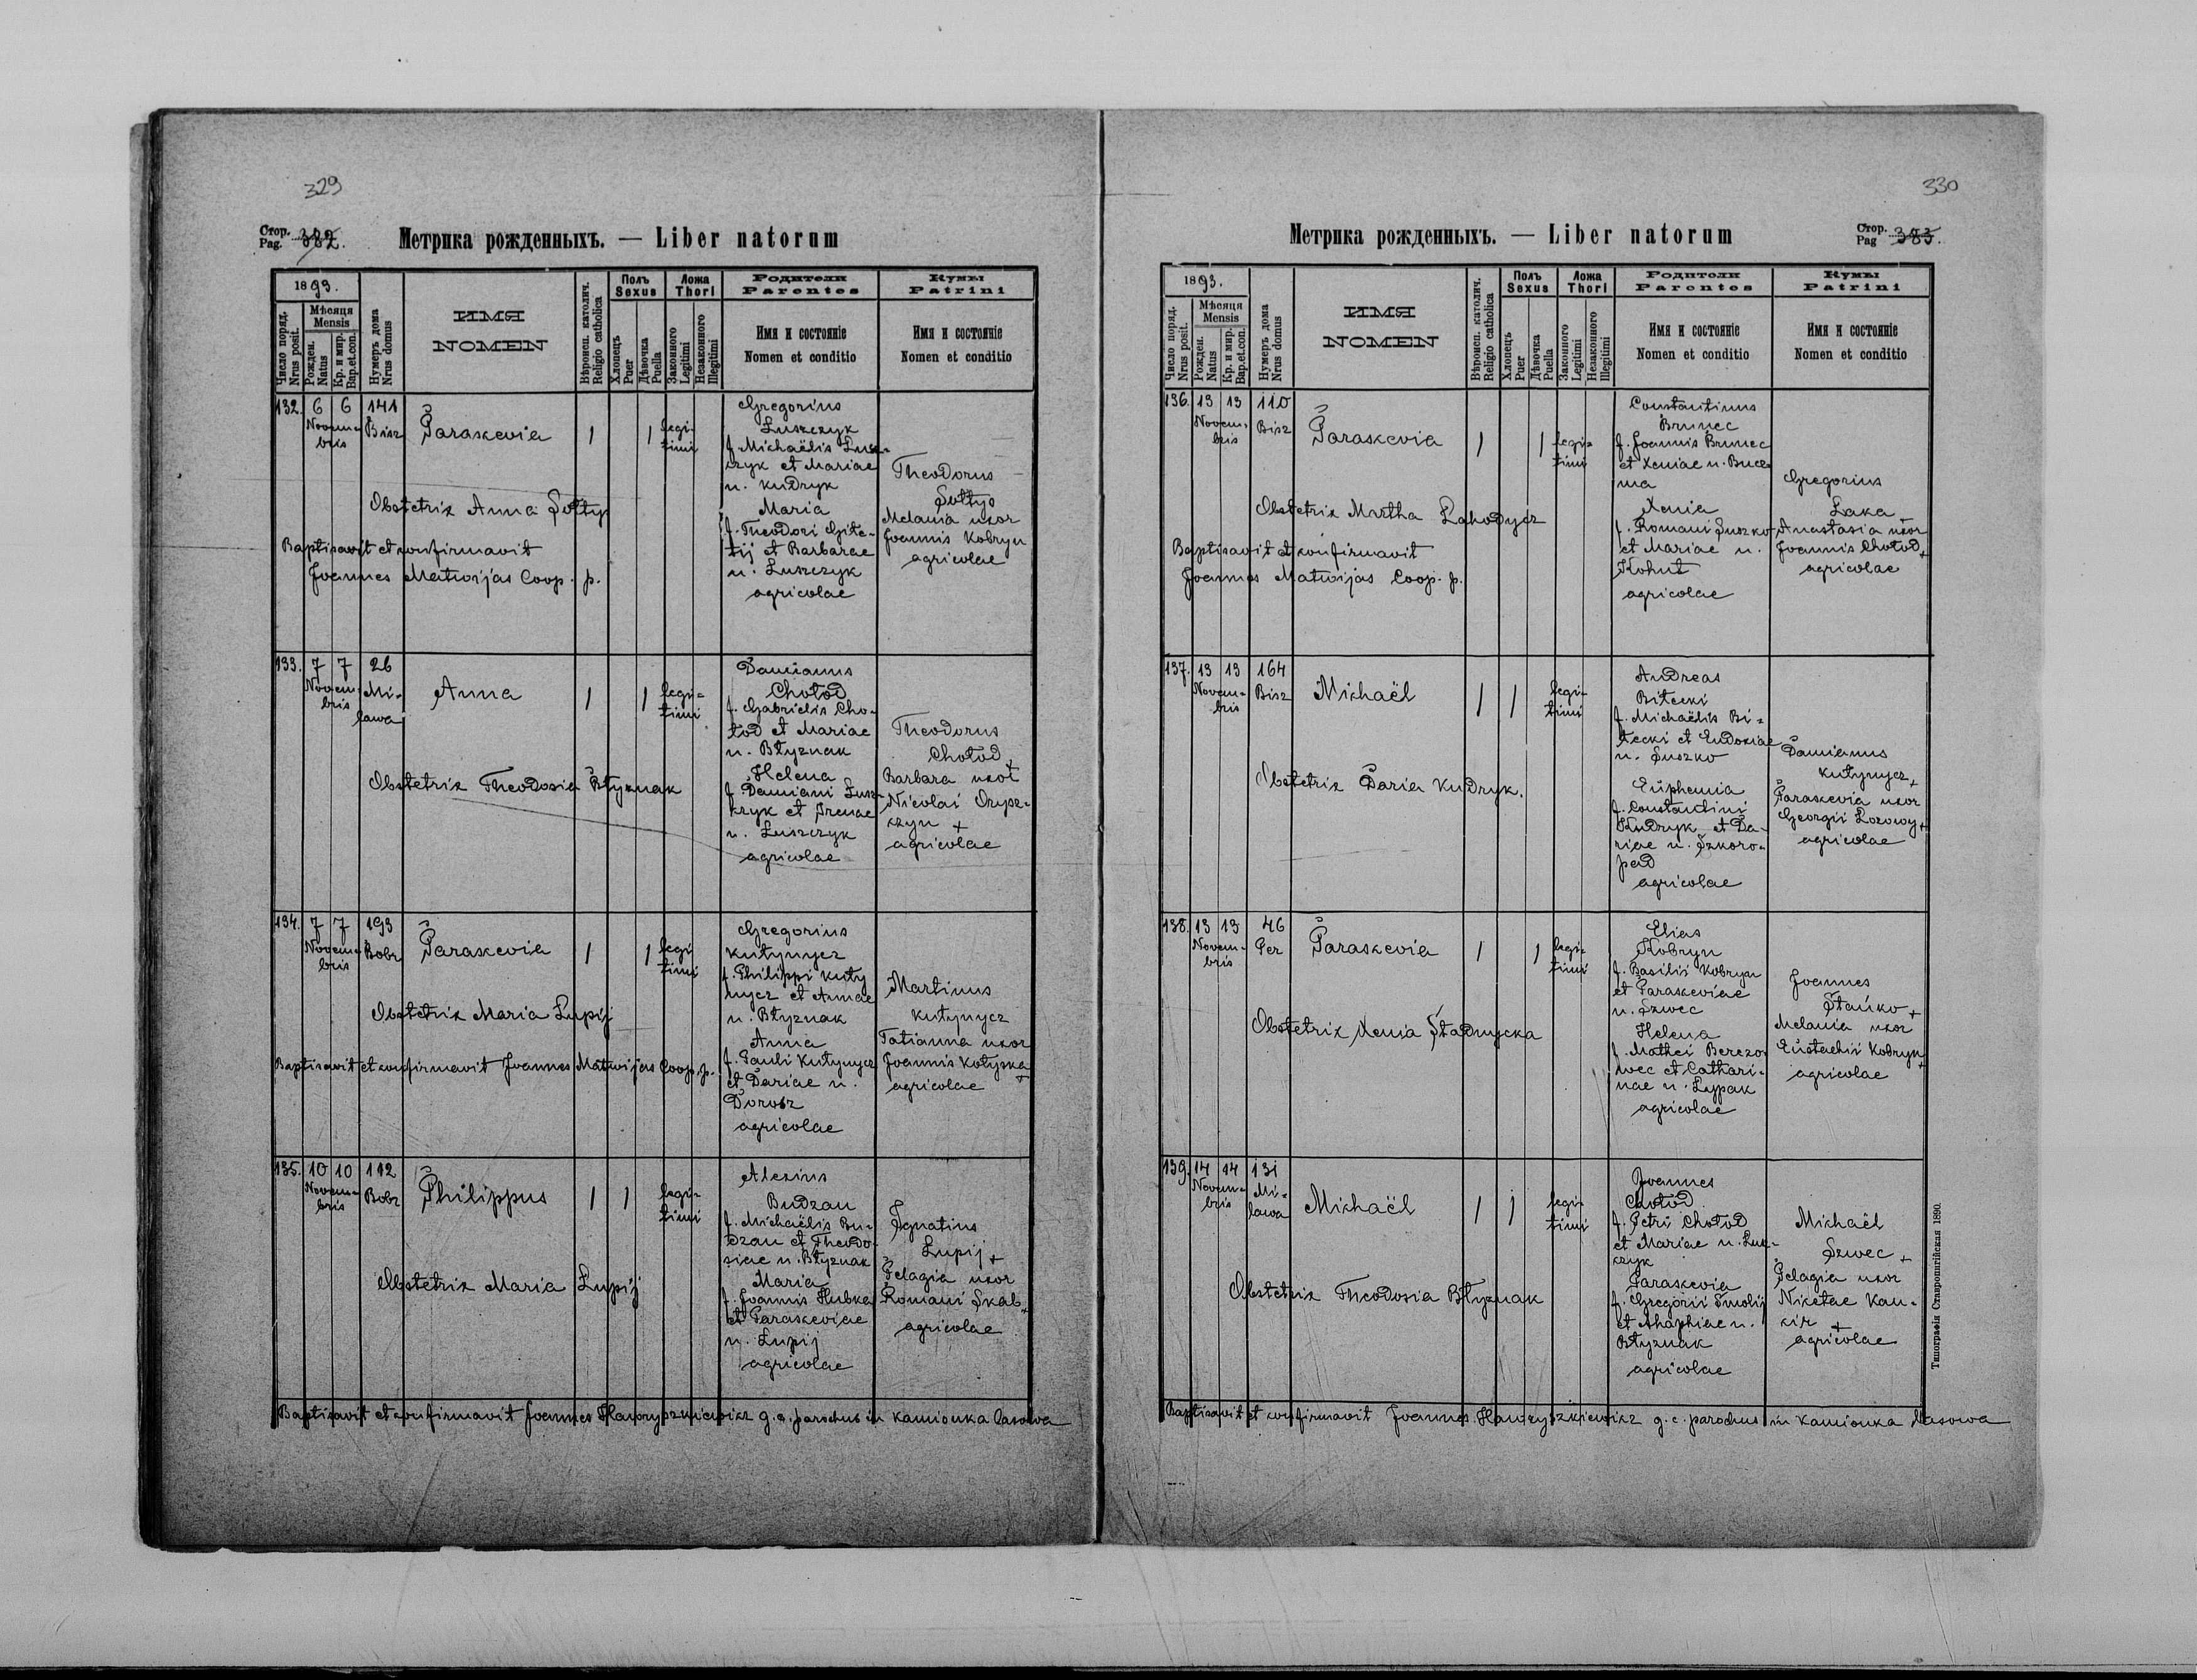 329
Стор. Pag. 382.
Метрика рожденныхъ. — Liber natorum
1893.
Число поряд. Nrus posit.
Мѣсяця Mensis
Рожден. Natus
Кр. и мир. Bap. et con.
Нумеръ дома Nrus domus
ИМЯ NOMEN
Вѣроисп. католич. Religio catholica
Полъ Sexus
Хлопецъ Puer
Дѣвочка Puella
Ложа Thori
Законного Legitimi
Незаконного Illegitimi
Родители Parentes
Имя и состояніе
Nomen et conditio
Кумы Patrini
Имя и состояніе
Nomen et conditio
132. 6 6 141
Novembris Bisz
Paraskevia
1 1 legitimi
Gregorius
Łuszczyk
f. Michaëlis
et Mariae
n. Kudryk
Maria
f. Theodori
et Barbarae
n. Łuszczyk
agricolae
Theodorus
Sołtys
Melania uxor
Joannis Kobryn
agricolae
Obstetrix Anna Sołtys
Baptisavit et confirmavit
Joannes Matwijas Coop. p.
133. 7 7 26
Novembris Miława
Anna
1 1 legitimi
Damianus
Chołod
f. Gabrielis Cho-
łod et Mariae
n. Błyznak
Helena
f. Damiani Łusz-
czyk et Irenae
n. Łuszczyk
agricolae
Theodorus
Chołod +
Barbara uxor
Nicolai Orysz-
czyn +
agricolae
Obstetrix Theodosia Błyznak
134. 7 7 193
Novembris Bobr
Paraskevia
1 1 legitimi
Gregorius
Kutynycz
f. Philippi Kuty
nycz et Annae
n. Błyznak
Anna
f. Pauli Kutynycz
et Dariae n.
Dorosz
agricolae
Martinus
Kutynycz
Tatianna uxor
Joannis Kotyska +
agricolae
Obstetrix Maria Łupij
Baptisavit et confirmavit Joannes Matwijas Coop. p.
135. 10 10 112
Novembris Bobr
Philippus
1 1 legitimi
Alexius
Budzan
f. Michaëlis Bu-
dzan et Theodo-
siae n. Błyznak
Maria
f. Joannis Hubka
et Paraskeviae
n. Łupij
agricolae
Ignatius
Łupij +
Pelagia uxor
Romani Skab +
agricolae
Obstetrix Maria Łupij
Baptisavit et confirmavit Joannes Hawryszkiewicz g. c. parochus in Kamionka Lasowa
330
Стор. Pag 383.
Метрика рожденныхъ. — Liber natorum
1893.
Число поряд. Nrus posit.
Мѣсяця Mensis
Рожден. Natus
Кр. и мир. Bap. et con.
Нумеръ дома Nrus domus
ИМЯ NOMEN
Вѣроисп. католич. Religio catholica
Полъ Sexus
Хлопецъ Puer
Дѣвочка Puella
Ложа Thori
Законного Legitimi
Незаконного Illegitimi
Родители Parentes
Имя и состояніе
Nomen et conditio
Кумы Patrini
Имя и состояніе
Nomen et conditio
136. 13 13 110
Novembris Bisz
Paraskevia
1 1 legitimi
Constantinus
Brunec
f. Joannis Brunec
et Xeniae n.
Xenia
f. Romani Suszko
et Mariae n.
Kohut
agricolae
Gregorius
Łaka
Anastasia uxor
Joannis Chołod +
agricolae
Obstetrix Martha Łahodycz
Baptisavit et confirmavit
Joannes Matwijas Coop. p.
137. 13 13 164
Novembris Bisz
Michaël
1 1 legitimi
Andreas
Bitecki
f. Michaëlis Bi-
tecki et Eudoxiae
n. Suszko
Euphemia
f. Constantini
Kudryk et Da-
riae n. Szkoro-
pad
agricolae
Damianus
Kutynycz +
Paraskevia uxor
Georgii Łozowy +
agricolae
Obstetrix Daria Kudryk.
138. 13 13 46
Novembris Per
Paraskevia
1 1 legitimi
Elias
Kobryn
f. Basilii Kobryn
et Paraskeviae
n. Szwec
Helena
f. Mathei Berezo-
wec et Cathari-
nae n. Łypak
agricolae
Joannes
Stańko +
Melania uxor
Eustachii Kobryn +
agricolae
Obstetrix Xenia Stadnycka
139. 14 14 131
Novembris Miława
Michaël
1 1 legitimi
Joannes
Chołod
f. Petri Chołod
et Mariae n. Łusz-
czyk
Paraskevia
f. Gregorii Smolij
et Ahaphiae n.
Błyznak
agricolae
Michaël
Szwec +
Pelagia uxor
Nicetae Kan-
cir +
agricolae
Obstetrix Theodosia Błyznak
Baptisavit et confirmavit Joannes Hawryszkiewicz g. c. parochus in Kamionka Lasowa
Типографія Ставропигійская 1890.